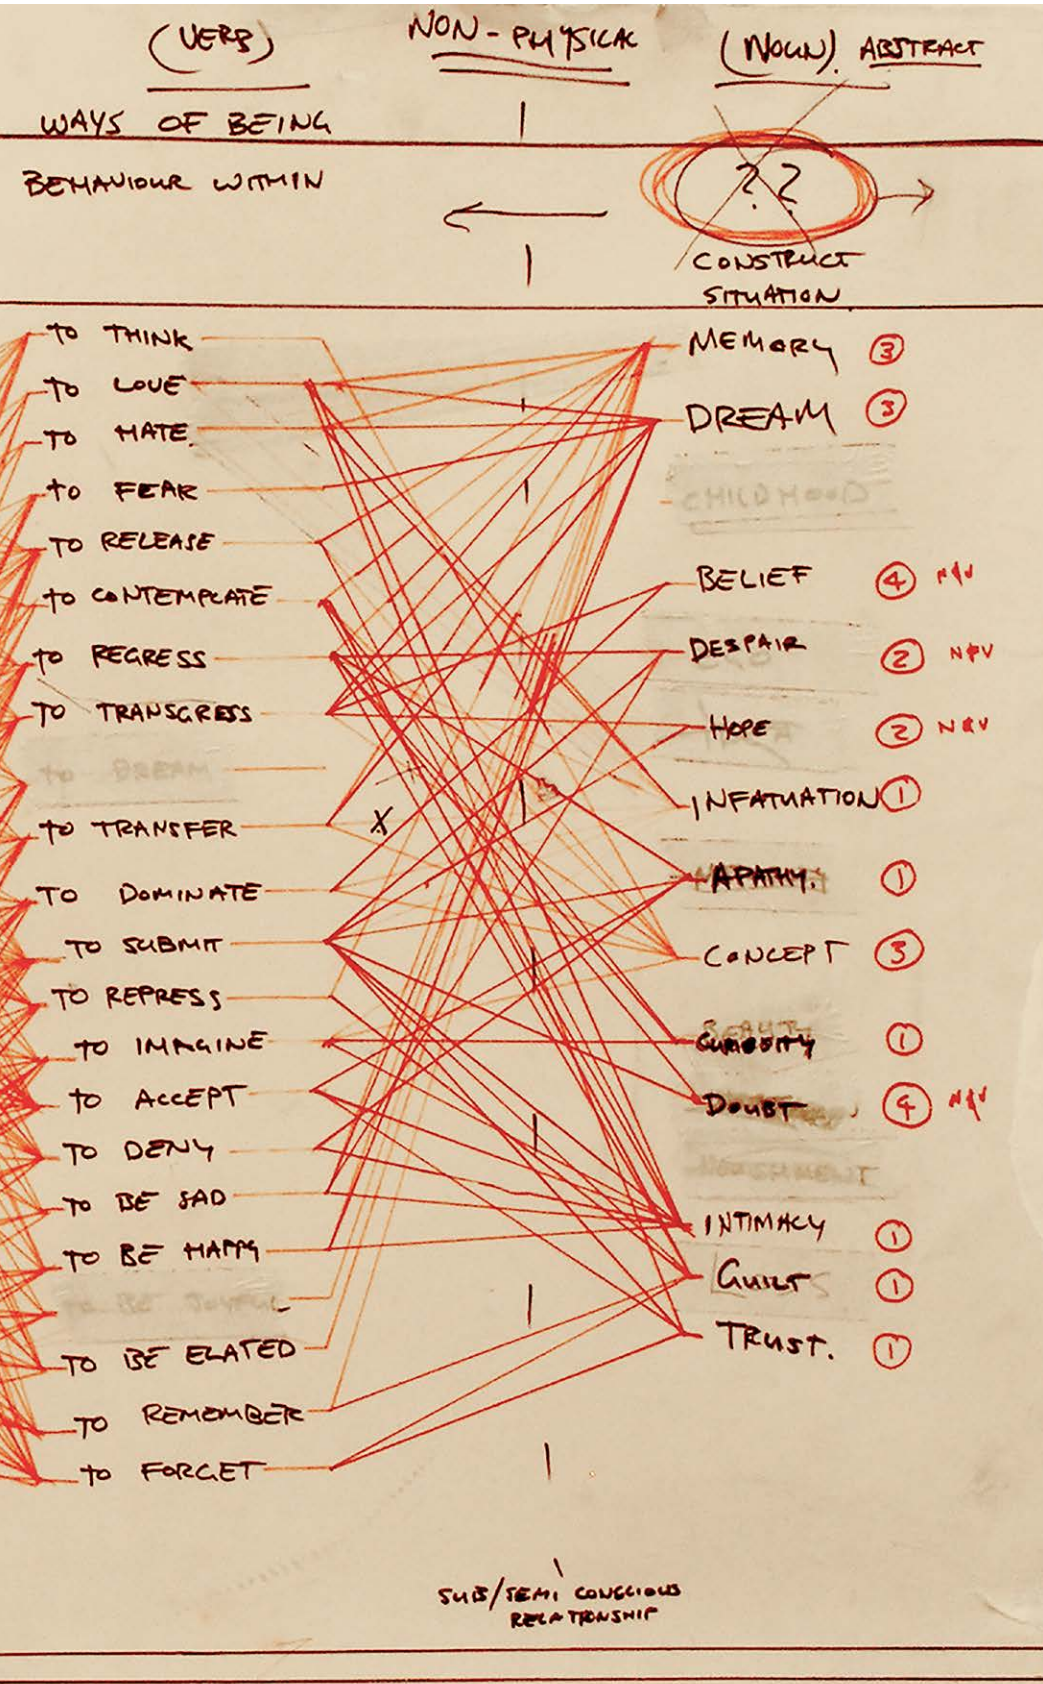 (VERB) NON-PHYSICAL (NOUN). ABSTRACT
WAYS OF BEING
BEHAVIOUR WITHIN ??
CONSTRUCT
SITUATION
TO THINK
TO LOVE
TO HATE.
TO FEAR
TO RELEASE
TO CONTEMPLATE
TO REGRESS
TO TRANSGRESS
TO DREAM
TO TRANSFER
TO DOMINATE
TO SUBMIT
TO REPRESS
TO IMAGINE
TO ACCEPT
TO DENY
TO BE SAD
TO BE HAPPY
TO BE JOYFUL
TO BE ELATED
TO REMEMBER
TO FORGET
X
MEMORY 3
DREAM 3
CHILDHOOD
BELIEF 4 N&V
DESPAIR 2 N&V
HOPE 2 N&V
INFATUATION 1
APATHY. 1
CONCEPT 3
CURIOSITY 1
DOUBT 4 N&V
INTIMACY 1
GUILT 1
TRUST. 1
SUB/SEMI CONSCIOUS
RELATIONSHIP